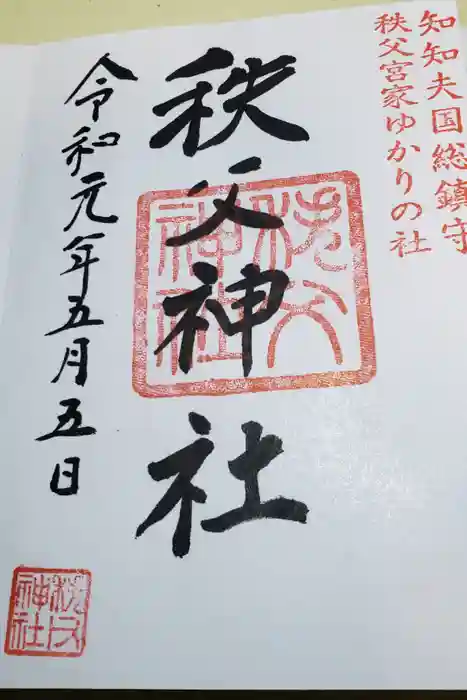 知知夫国総鎮守
秩父宮家ゆかりの社
秩父神社
令和元年五月五日
秩父
神社
秩父
神社